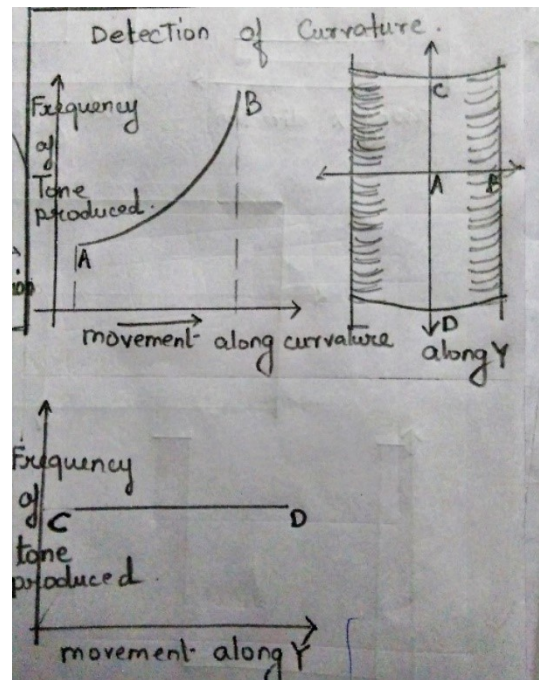 Detection of Curvature.
Frequency
of
Tone
produced.
B
A
movement along curvature
C
A
B
D
along Y
Frequency
of
tone
produced.
C
D
movement along Y